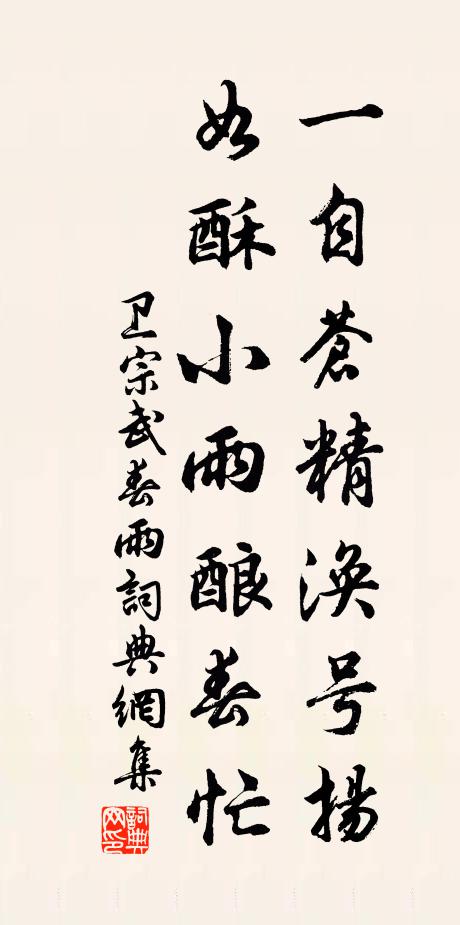 一自苍精涣号揚
如酥小雨酿春忙
卫宗武春雨詞典網集
詞典网印